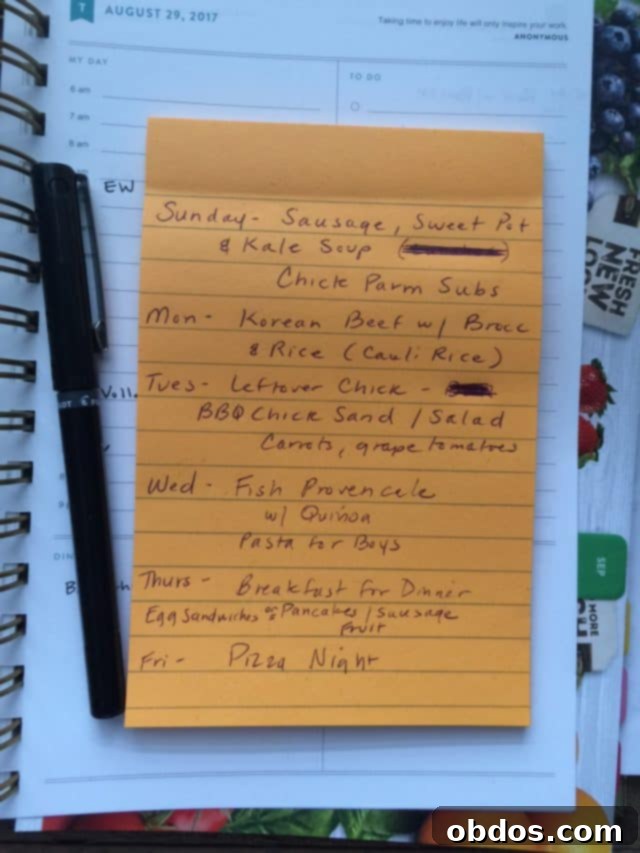 T
AUGUST 29, 2017
Taking time to enjoy life will only inspire your work.
ANONYMOUS
MY DAY
TO DO
6 am
7 am
8 am
EW
Sunday - Sausage, Sweet Pot
& Kale Soup
Chick Parm Subs
Mon - Korean Beef w/ Brocc
& Rice (Cauli Rice)
Tues - Leftover Chick -
BBQ Chick Sand / Salad
Carrots, grape tomatoes
Wed - Fish Provencale
w/ Quinoa
Pasta for Boys
Thurs - Breakfast for Dinner
Egg Sandwiches or Pancakes / Sausage
Fruit
Fri - Pizza Night
FRESH
NEW
SEP
MORE
obdos.com